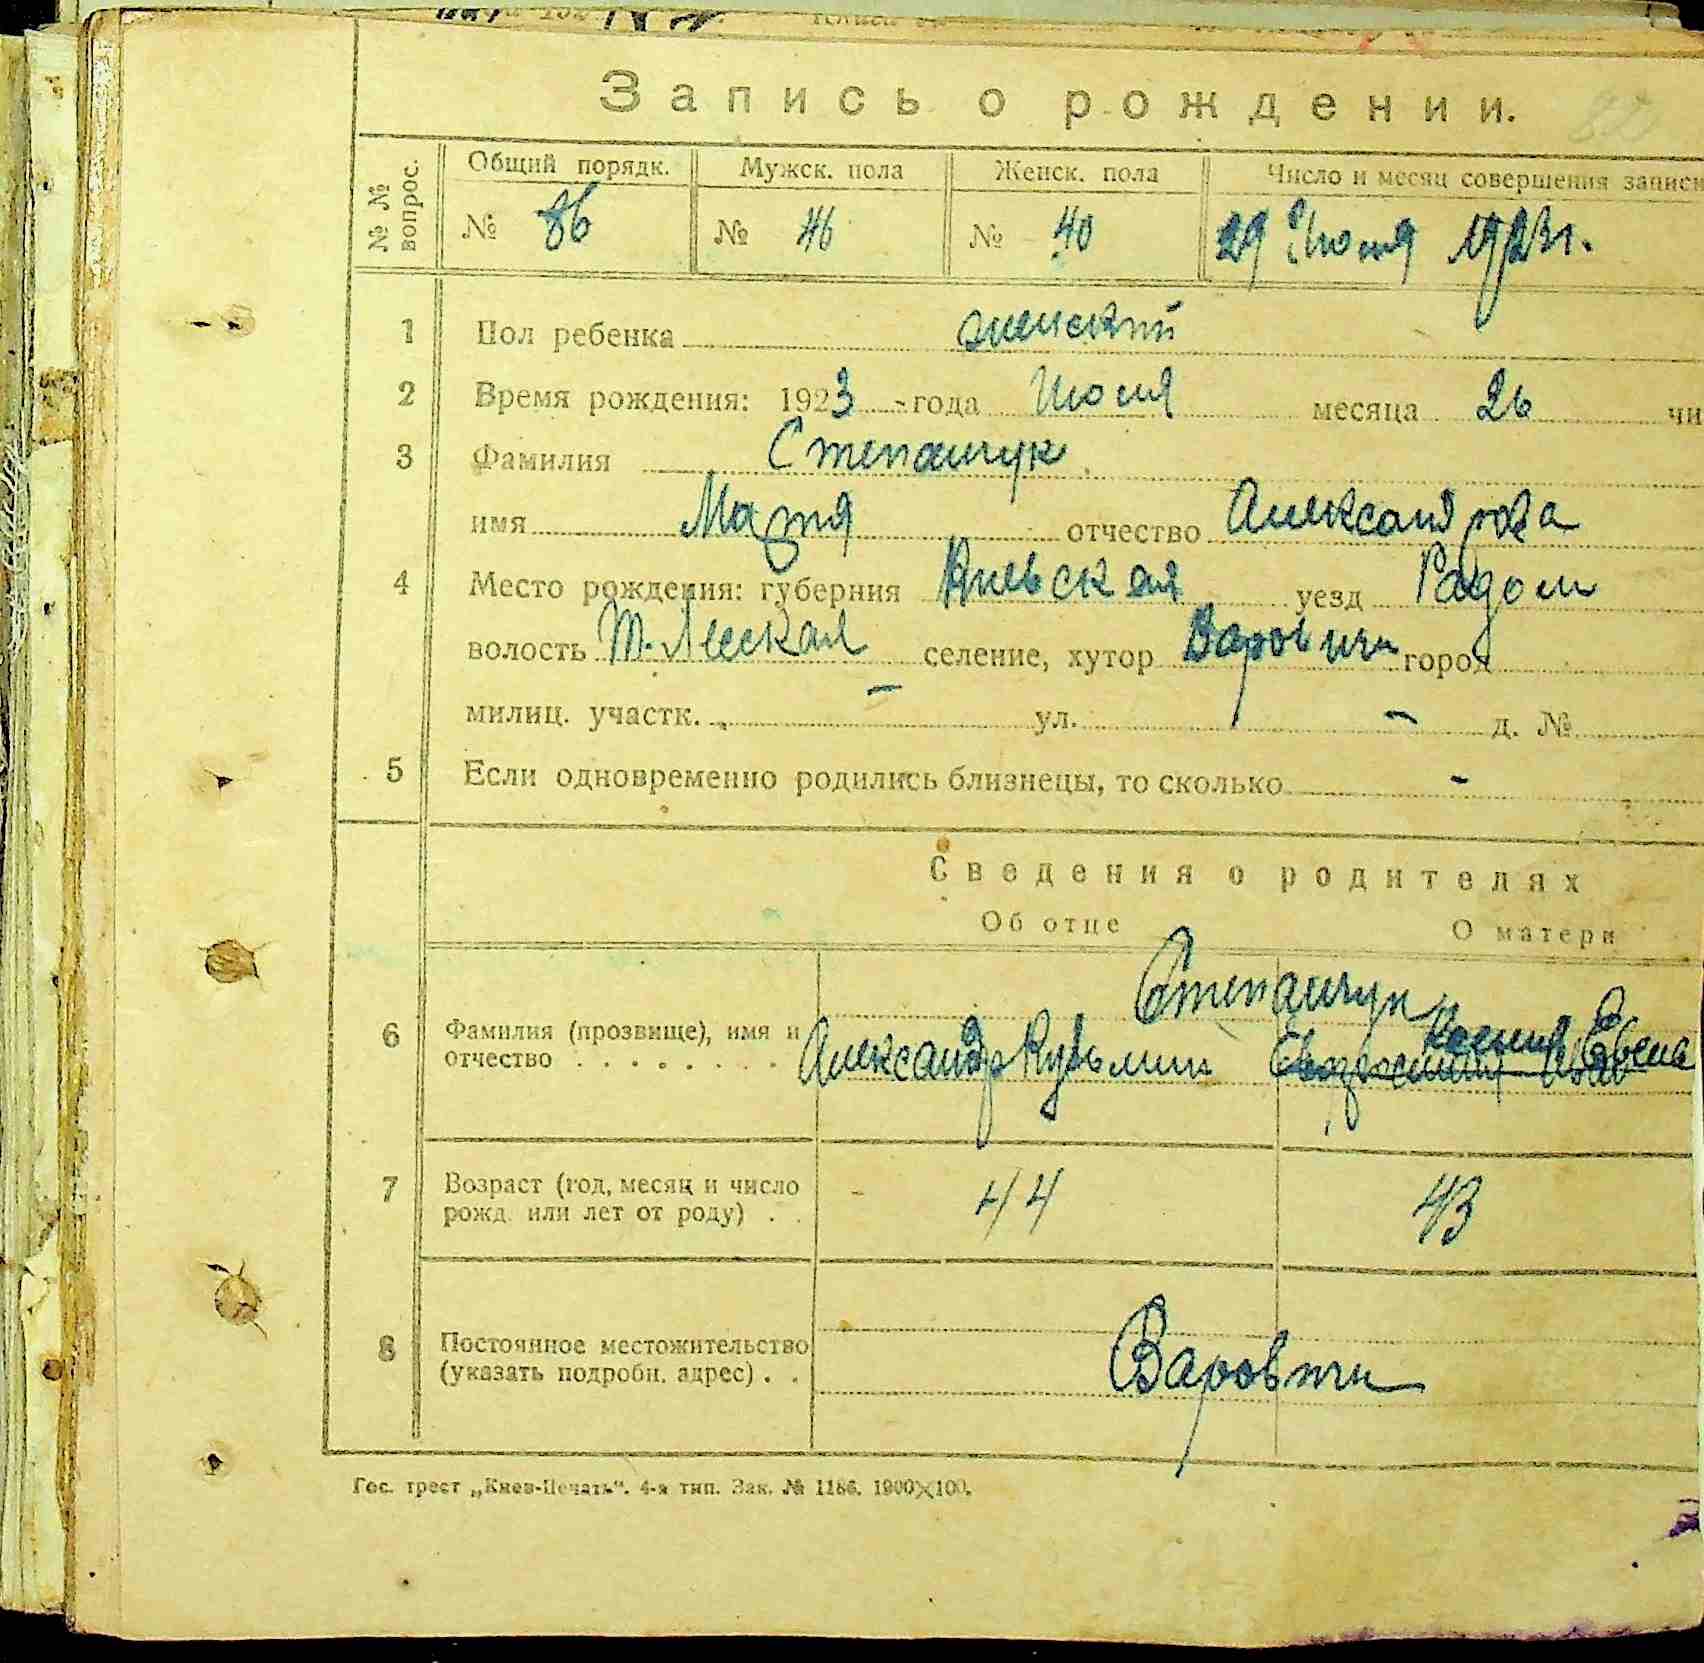 Запись о рождении.
№ № вопрос.
Общий порядк. Мужск. пола Женск. пола Число и месяц совершения записи
№ 86 № 46 № 40 29 Июля 1923 г.
1 Пол ребенка женский
2 Время рождения: 1923 года Июля месяца 26 чи
3 Фамилия Степанчук
имя Мария отчество Александрова
4 Место рождения: губерния Киевская уезд Радом
волость селение, хутор Варовичи город
милиц. участк. - ул. - д. №
5 Если одновременно родились близнецы, то сколько -
Сведения о родителях
Об отце О матери
Степанчук
6 Фамилия (прозвище), имя и Александр Кузьмин Ксения
отчество . . . . . . . .
7 Возраст (год, месяц и число 44 43
рожд. или лет от роду) . .
8 Постоянное местожительство Варовичи
(указать подробн. адрес) . .
Гос. трест „Киев-Печать“. 4-я тип. Зак. № 1186. 1900×100.